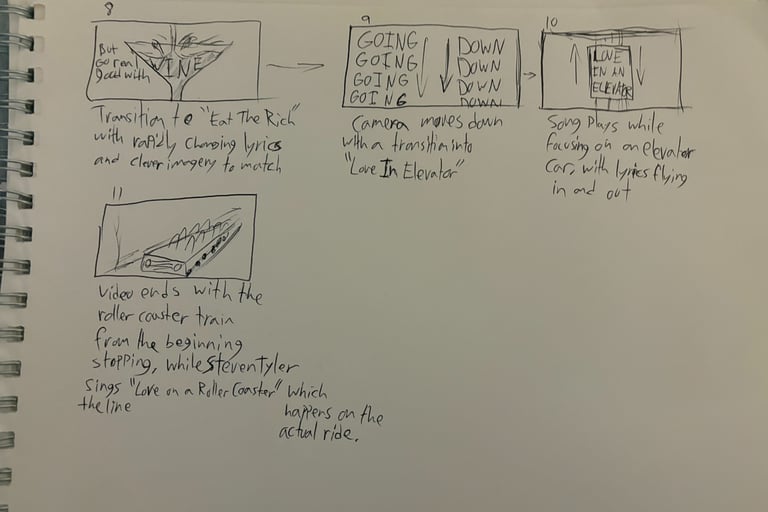 8
But
Go real
good with
WINE
Transition to "Eat The Rich"
with rapidly changing lyrics
and clever imagery to match
9
GOING DOWN
GOING DOWN
GOING DOWN
GOING DOWN
Camera moves down
with a transition into
"Love In Elevator"
10
LOVE
IN AN
ELEVATOR
Song plays while
focusing on an elevator
car, with lyrics flying
in and out
11
Video ends with the
roller coaster train
from the beginning
stopping, while Steven Tyler
sings "Love on a Roller Coaster" which
the line
happens on the
actual ride.